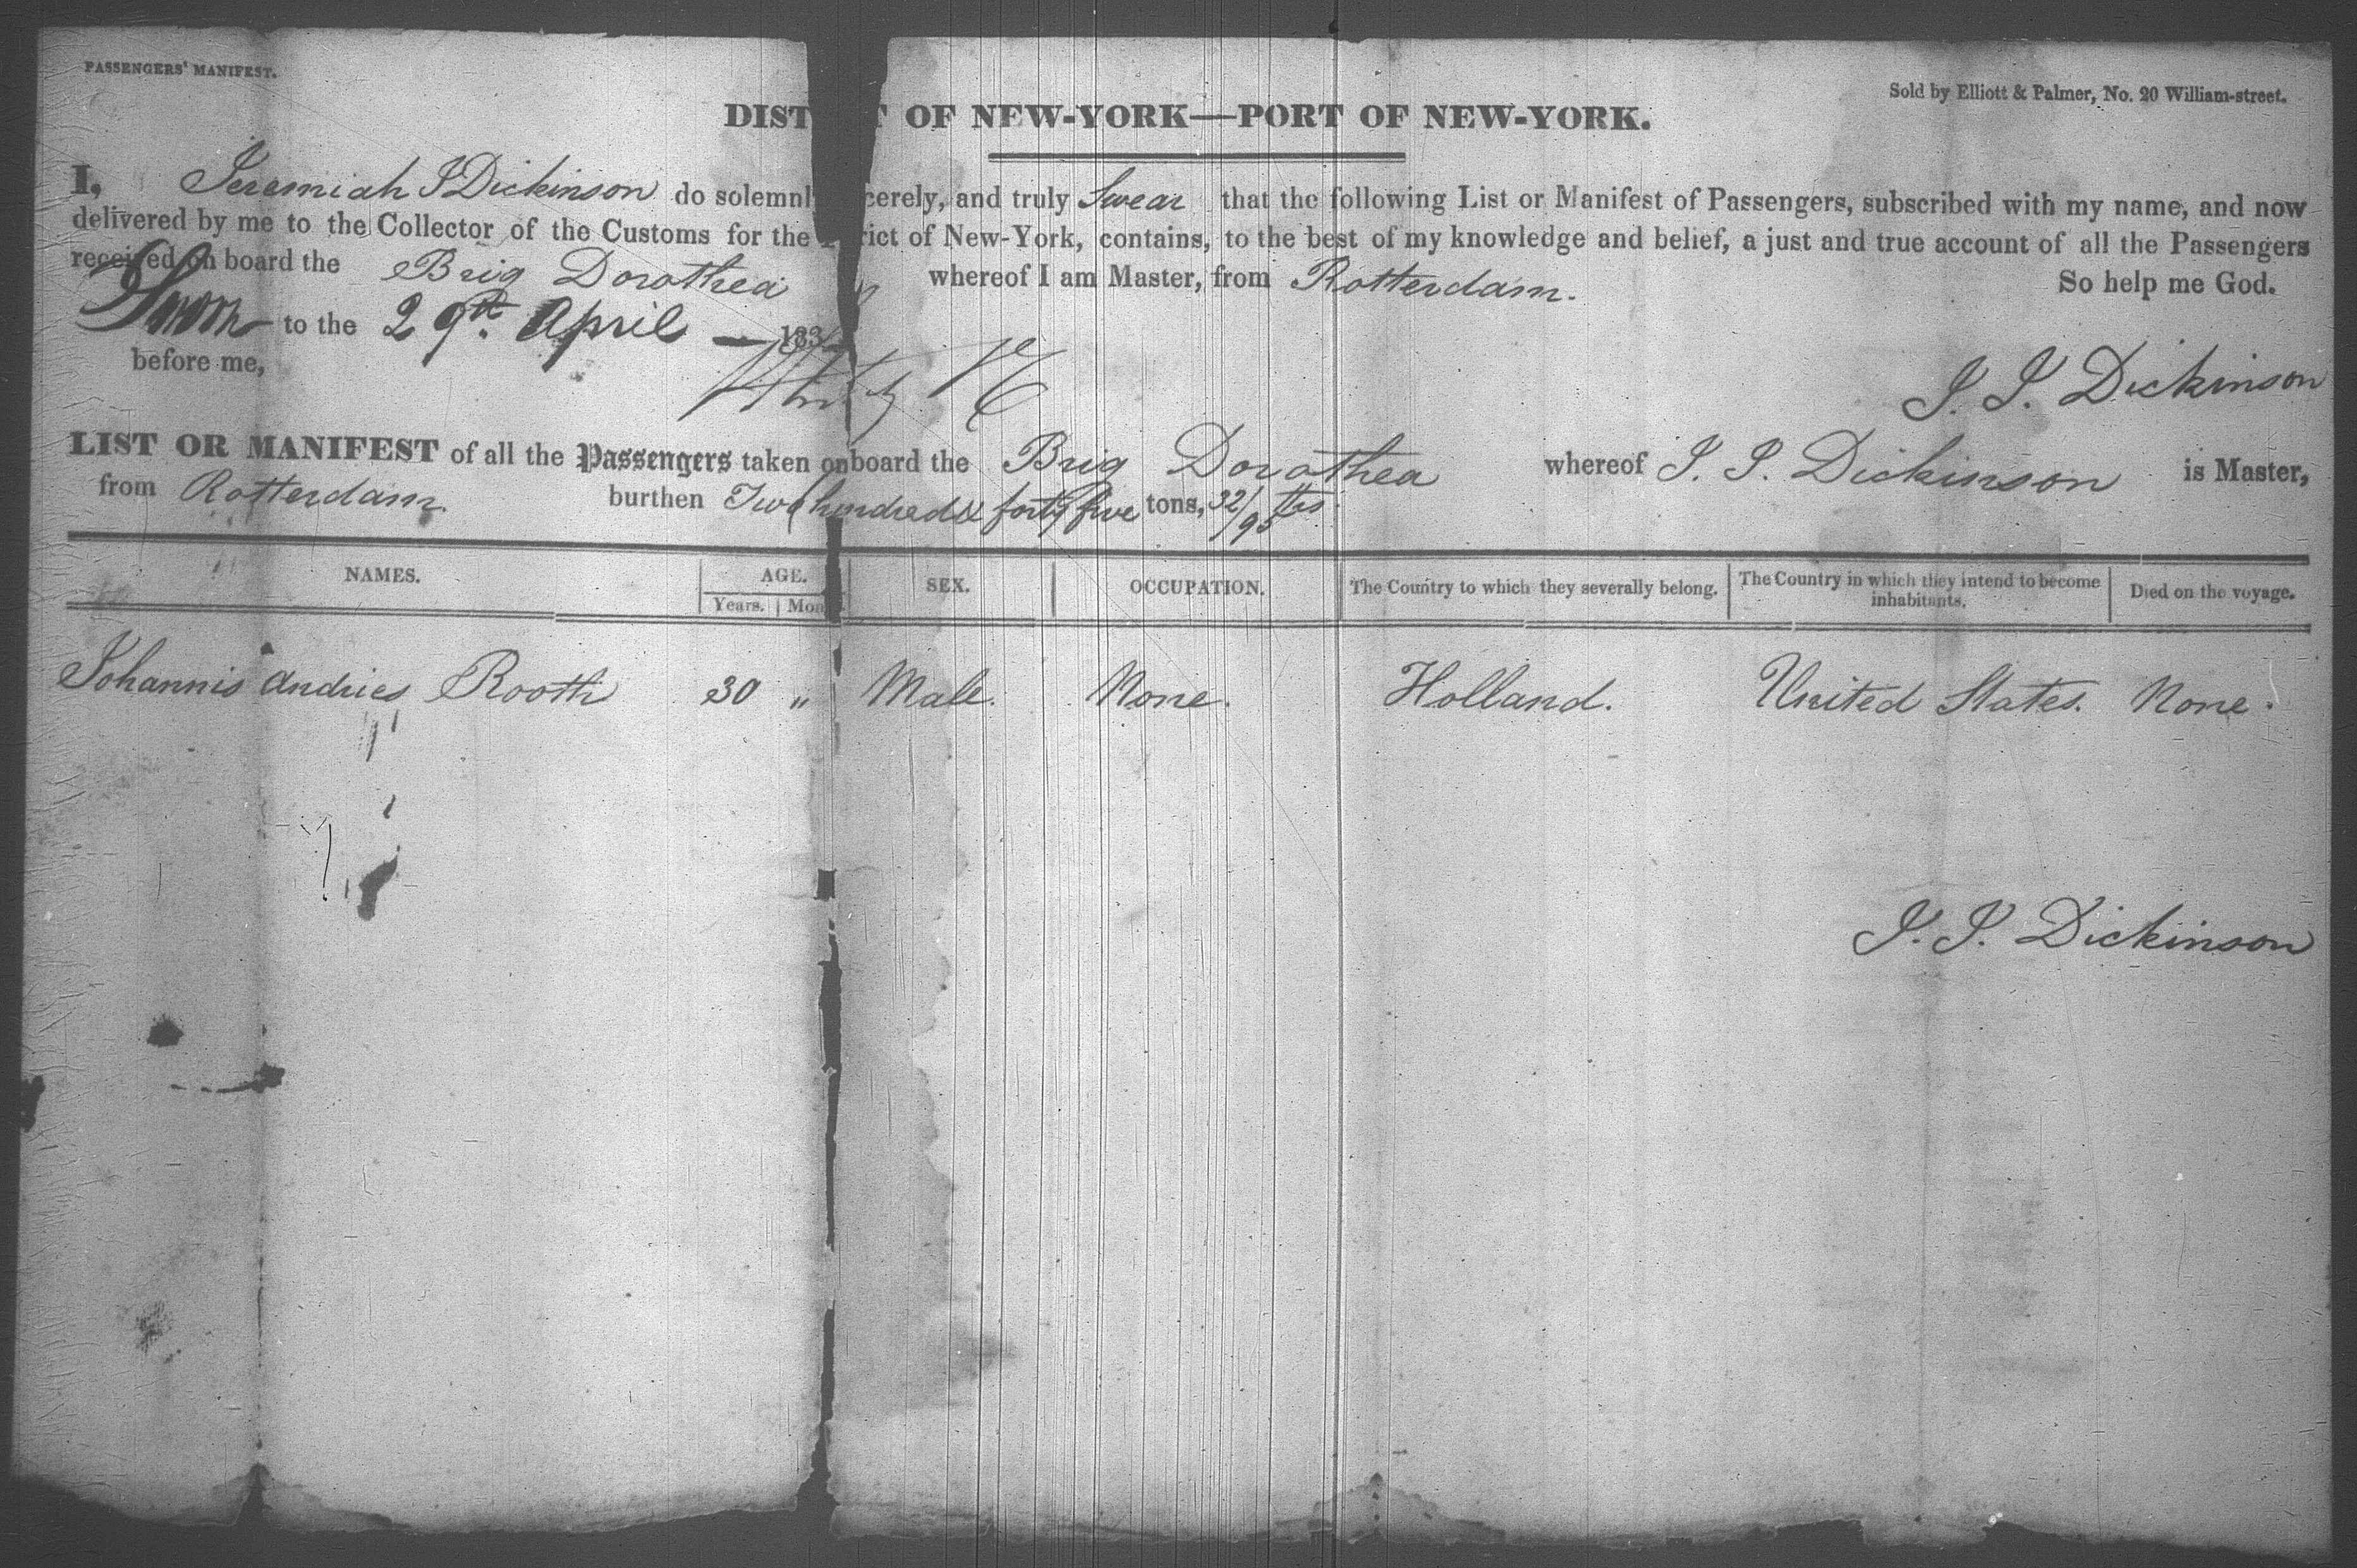 PASSENGERS' MANIFEST.
Sold by Elliott & Palmer, No. 20 William-street.
DIST T OF NEW-YORK—PORT OF NEW-YORK.
I, Jeremiah J Dickinson do solemnl cerely, and truly Swear that the following List or Manifest of Passengers, subscribed with my name, and now
delivered by me to the Collector of the Customs for the rict of New-York, contains, to the best of my knowledge and belief, a just and true account of all the Passengers
received on board the Brig Dorothea whereof I am Master, from Rotterdam.
So help me God.
Sworn to the 29th April — 183
before me,
J. J. Dickinson
LIST OR MANIFEST of all the Passengers taken on board the Brig Dorothea whereof J. J. Dickinson is Master,
from Rotterdam. burthen Two hundred & forty five tons, 32/95 ths
NAMES. AGE. SEX. OCCUPATION. The Country to which they severally belong. The Country in which they intend to become inhabitants. Died on the voyage.
Years. Mon
Johannis Andries Rooth 30 " Male. None. Holland. United States. None.
J. J. Dickinson